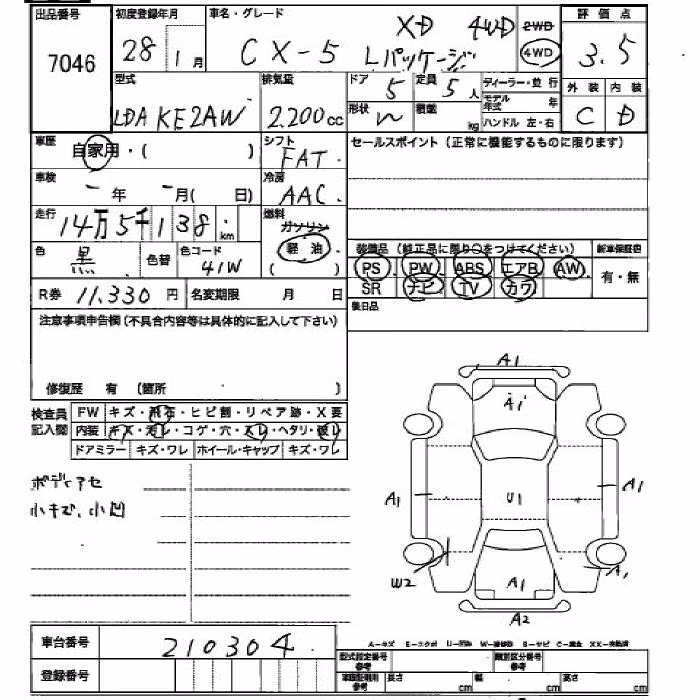 出品番号 初度登録年月 車名・グレード XD 4WD 2WD 評価点
7046 28 1月 CX-5 Lパッケージ 4WD 3.5
型式 排気量 ドア 定員 ディーラー・並行 外装 内装
LDA KE2AW 2,200cc 5 5人 モデル年式 年 C D
形状 W 積載 kg ハンドル 左・右
車歴 自家用・( ) シフト FAT. セールスポイント(正常に機能するものに限ります)
車検 - 年 - 月( 日) 冷房 AAC.
走行 14万5千138.km 燃料 ガソリン
色 黒 色替 色コード 41W 軽油 ( ) 装備品(純正品に限り○をつけてください) 新車保証書
PS PW ABS エアB AW 有・無
R券 11,330円 名変期限 月 日 SR ナビ TV カワ
注意事項申告欄(不具合内容等は具体的に記入して下さい) 後日品
修復歴 有 (箇所 )
検査員 FW キズ・飛石・ヒビ割・リペア跡・X要
記入欄 内装 キズ・汚レ・コゲ・穴・スレ・ヘタリ・破レ
ドアミラー キズ・ワレ ホイール・キャップ キズ・ワレ
ボディアセ
小キズ、小凹
A1
A1
A1 U1 A1
W2 A1 A1
A2
車台番号 210304
A-キズ E-エクボ U-凹み W-補修跡 S-サビ C-腐食 XX-交換済
登録番号 型式指定番号 参考 類別区分番号 参考
車庫証明用 参考 長さ cm 幅 cm 高さ cm